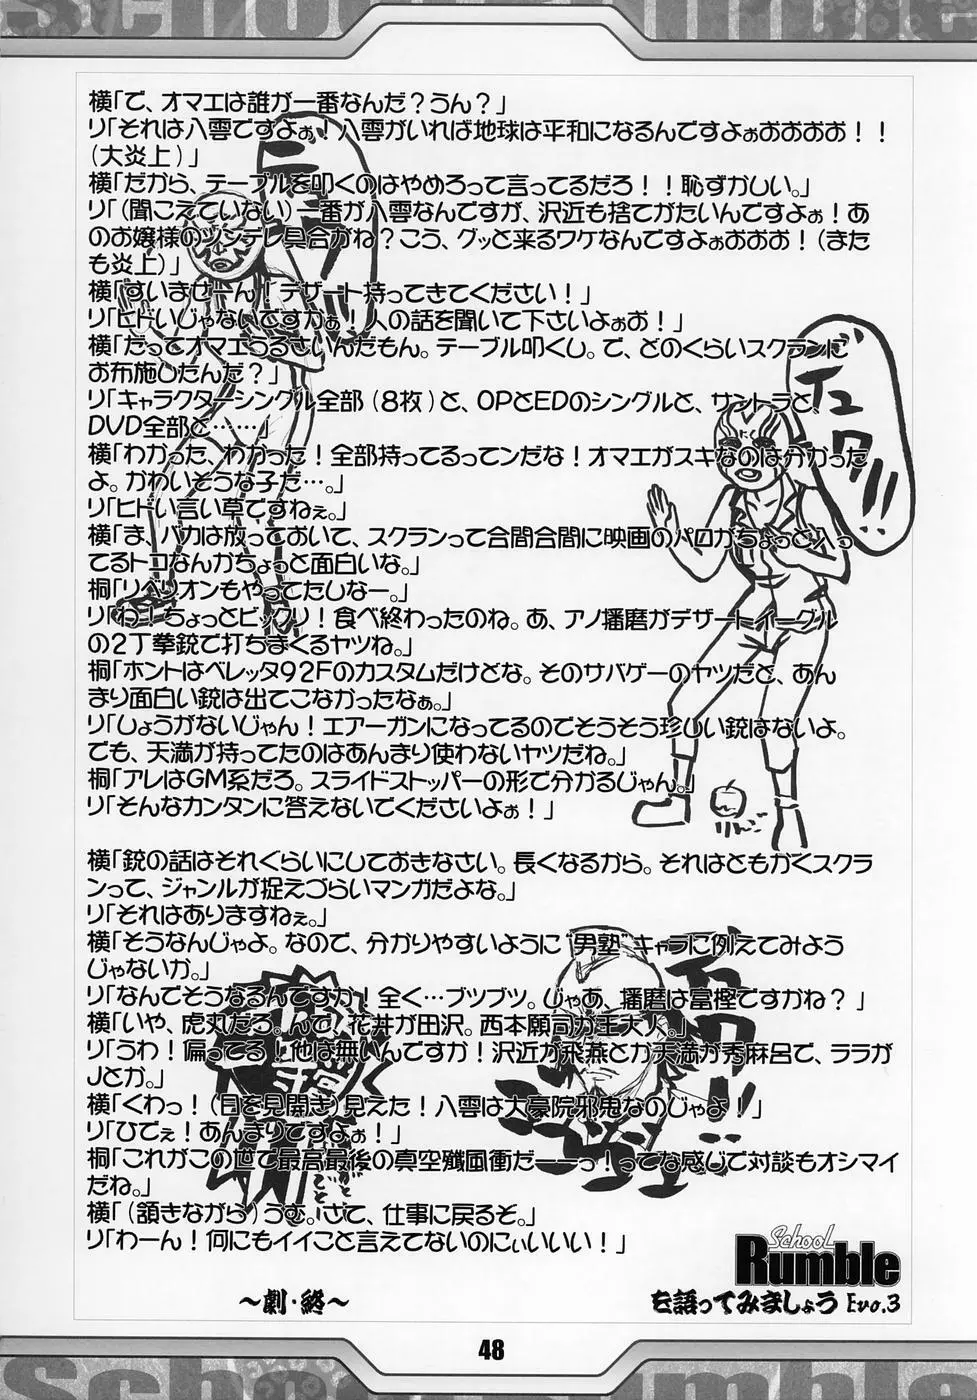 School Rumble
横「で、オマエは誰が一番なんだ？うん？」
リ「それは八雲ですよぉ！八雲がいれば地球は平和になるんですよぉおおおお！！
（大炎上）」
横「だから、テーブルを叩くのはやめろって言ってるだろ！！恥ずかしい。」
リ「（聞こえていない）一番が八雲なんですが、沢近も捨てがたいんですよぉ！あ
のお嬢様のツンデレ具合がね？こう、グッと来るワケなんですよぉおおお！（また
も炎上）」
横「すいませーん！デザート持ってきてください！」
リ「ヒドいじゃないですかぁ！人の話を聞いて下さいよぉお！」
横「だってオマエうるさいんだもん。テーブル叩くし。で、どのくらいスクランに
お布施したんだ？」
リ「キャラクターシングル全部（８枚）と、OPとEDのシングルと、サントラと、
DVD全部と……」
横「わかった、わかった！全部持ってるってンだな！オマエがスキなのは分かった
よ。かわいそうな子だ…。」
リ「ヒドい言い草ですねぇ。」
横「ま、バカは放っておいて、スクランって合間合間に映画のパロがちょっと入っ
てるトコなんかちょっと面白いな。」
桐「リベリオンもやってたしなー。」
リ「わ！ちょっとビックリ！食べ終わったのね。あ、アノ播磨がデザートイーグル
の２丁拳銃で打ちまくるヤツね。」
桐「ホントはベレッタ92Fのカスタムだけどな。そのサバゲーのヤツだと、あん
まり面白い銃は出てこなかったなぁ。」
リ「しょうがないじゃん！エアーガンになってるのでそうそう珍しい銃はないよ。
でも、天満が持ってたのはあんまり使わないヤツだね。」
桐「アレはGM系だろ。スライドストッパーの形で分かるじゃん。」
リ「そんなカンタンに答えないでくださいよぉ！」
りんご
横「銃の話はそれぐらいにしておきなさい。長くなるから。それはともかくスクラ
ンって、ジャンルが捉えづらいマンガだよな。」
リ「それはありますねぇ。」
横「そうなんじゃよ。なので、分かりやすいように“男塾”キャラに例えてみよう
じゃないか。」
リ「なんでそうなるんですか！全く…ブツブツ。じゃあ、播磨は富樫ですかね？」
横「いや、虎丸だろ。んで、花井が田沢。西本願司が王大人。」
リ「うわ！偏ってる！他は無いんですか！沢近が飛燕とか天満が秀麻呂で、ララが
Jとか。」
横「くわっ！（目を見開き）見えた！八雲は大豪院邪鬼なのじゃよ！」
リ「ひでぇ！あんまりですよぉ！」
桐「これがこの世で最高最後の真空殲風衝だーーっ！ってな感じで対談もオシマイ
だね。」
横「（頷きながら）うむ。さて、仕事に戻るぞ。」
リ「わーん！何にもイイこと言えてないのにぃいいい！」
School
Rumble
〜劇・終〜
を語ってみましょう Evo.3
48
School Rumble